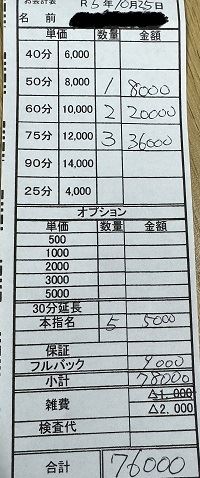 お会計表 R5年10月25日
名 前
単価 数量 金額
40分 6,000
50分 8,000 1 8000
60分 10,000 2 20000
75分 12,000 3 36000
90分 14,000
25分 4,000
オプション
単価 数量 金額
500
1000
2000
3000
5000
30分延長
本指名 5 5000
保証
フルバック 9000
小計 78000
雑費 △1.000
△2.000
検査代
合計 76000